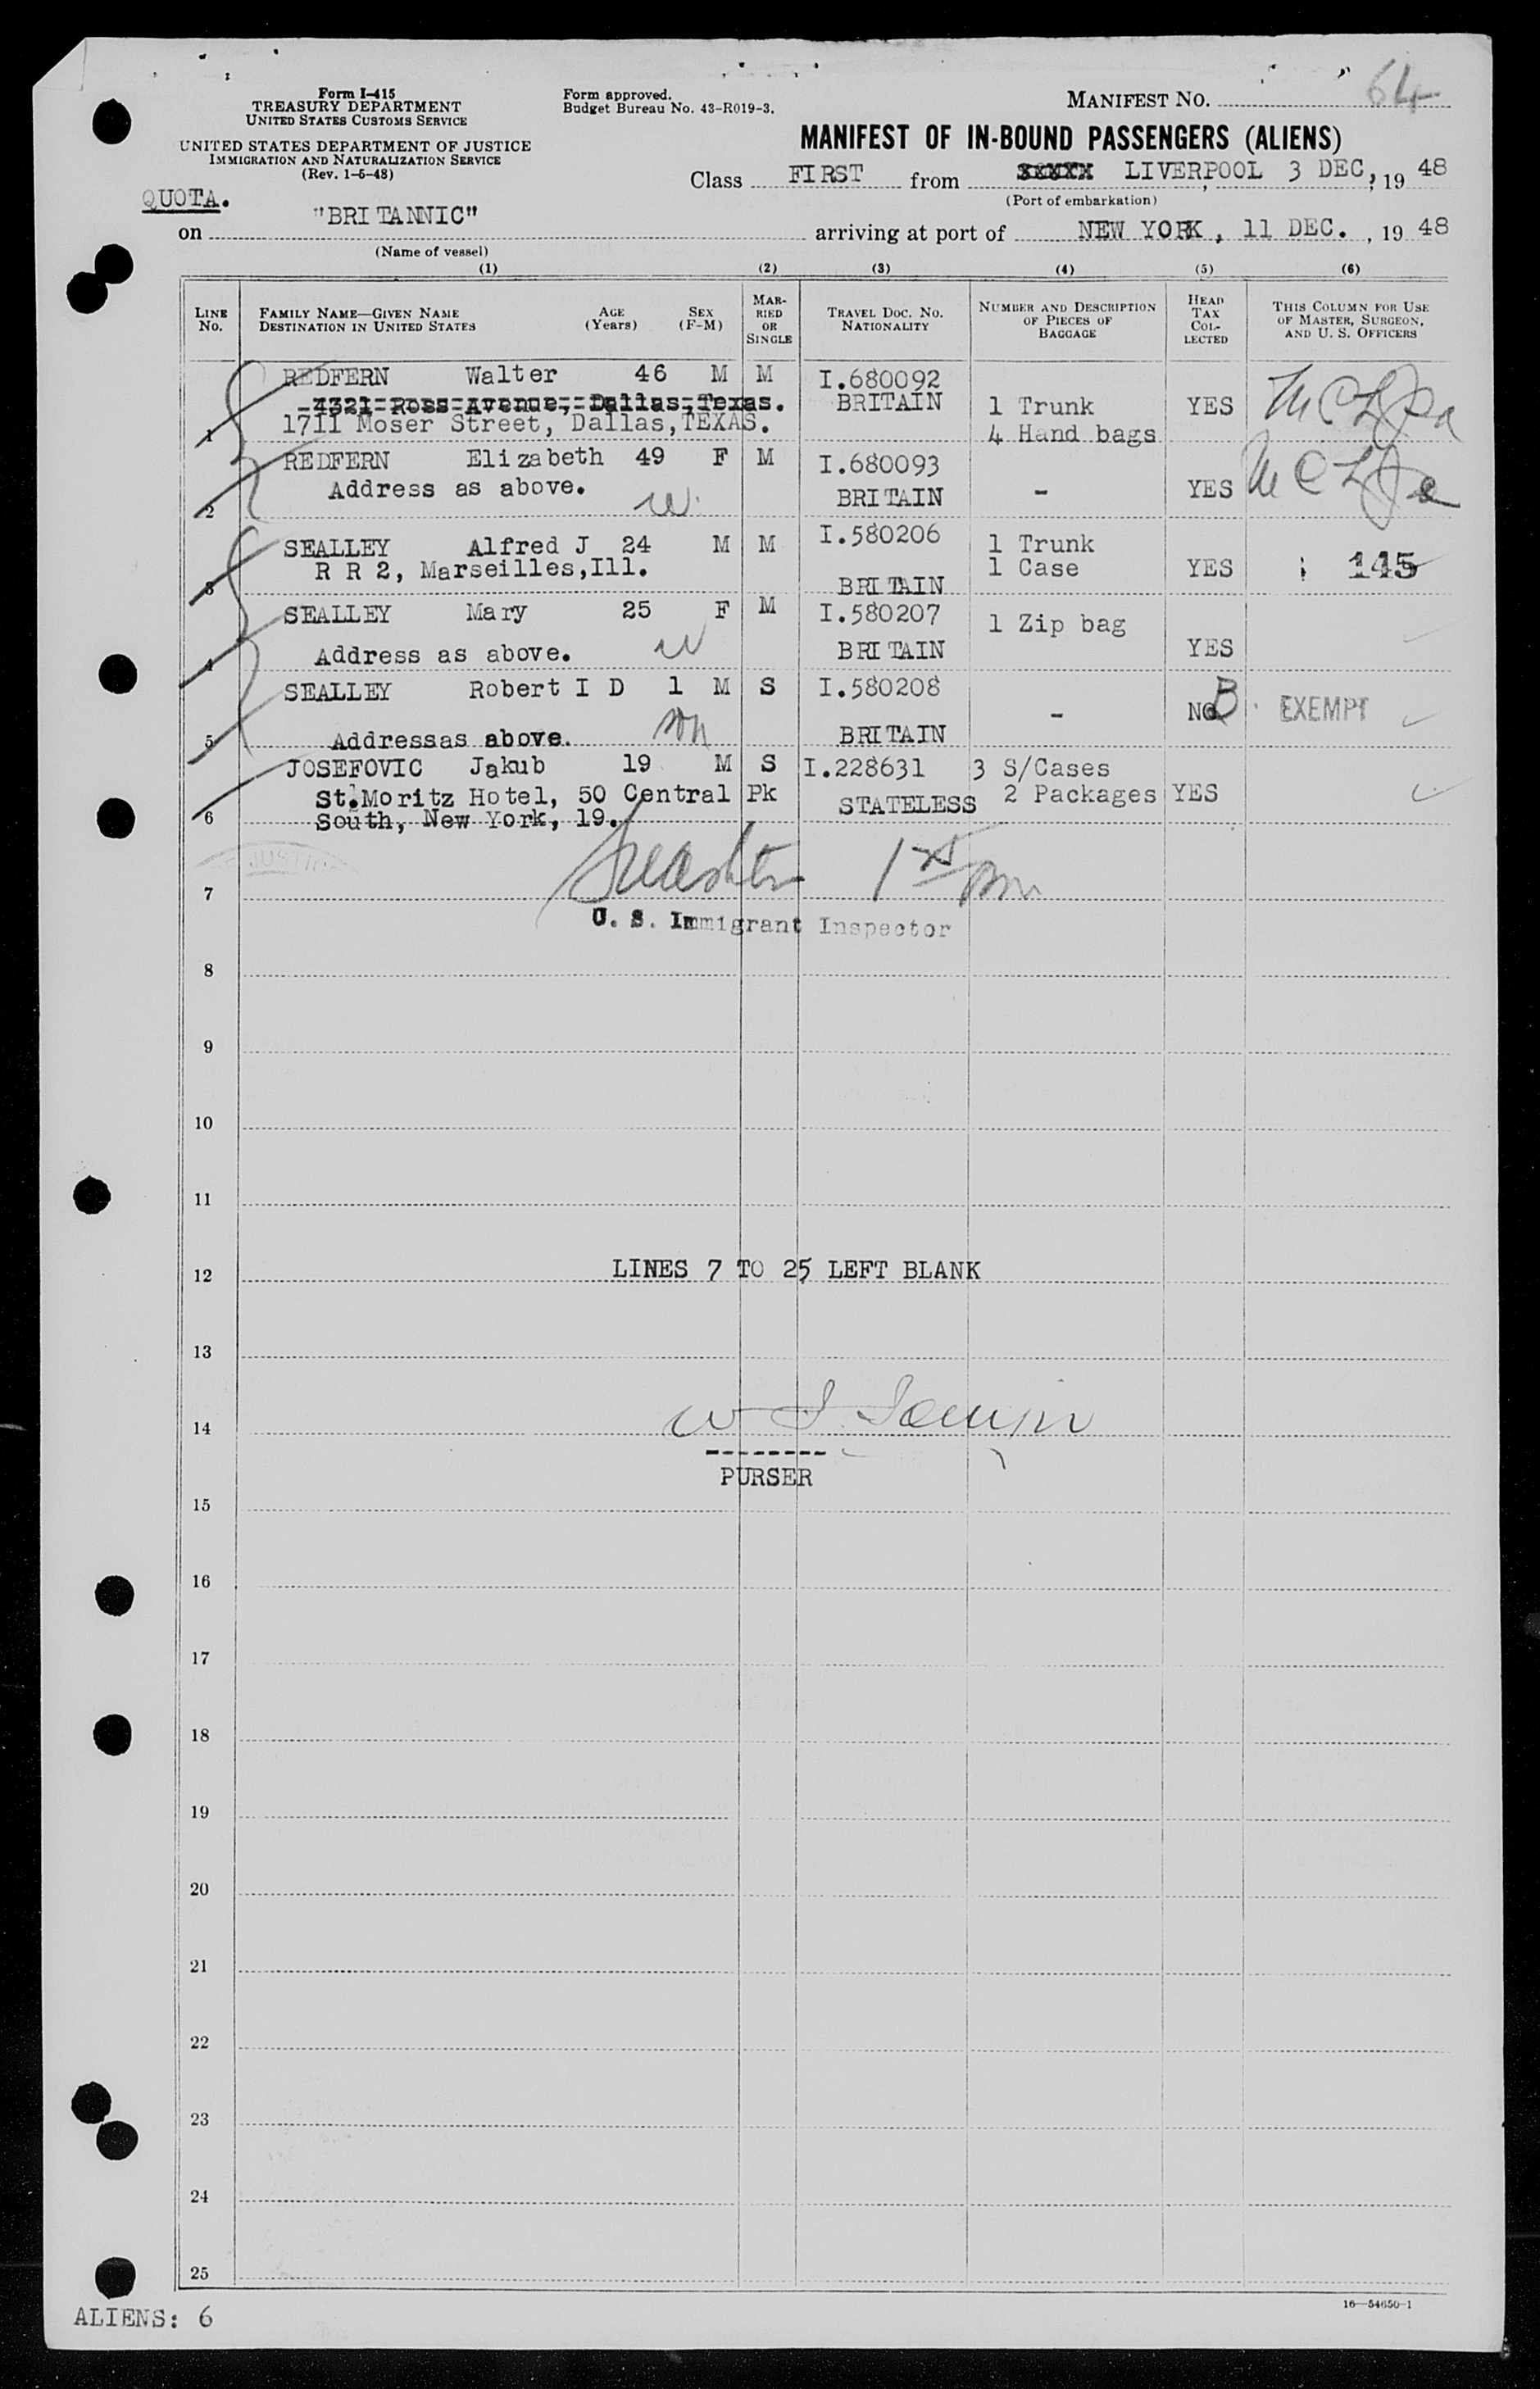 Form I-415
TREASURY DEPARTMENT
UNITED STATES CUSTOMS SERVICE
UNITED STATES DEPARTMENT OF JUSTICE
IMMIGRATION AND NATURALIZATION SERVICE
(Rev. 1-5-48)
Form approved.
Budget Bureau No. 43-R019-3.
MANIFEST NO. 64
MANIFEST OF IN-BOUND PASSENGERS (ALIENS)
Class FIRST from LIVERPOOL 3 DEC, 19 48
(Port of embarkation)
QUOTA.
on "BRITANNIC" arriving at port of NEW YORK, 11 DEC. , 19 48
(Name of vessel)
(1) (2) (3) (4) (5) (6)
LINE No.
FAMILY NAME—GIVEN NAME AGE (Years) SEX (F-M)
DESTINATION IN UNITED STATES
MARRIED OR SINGLE
TRAVEL DOC. NO. NATIONALITY
NUMBER AND DESCRIPTION OF PIECES OF BAGGAGE
HEAD TAX COLLECTED
THIS COLUMN FOR USE OF MASTER, SURGEON, AND U. S. OFFICERS
REDFERN Walter 46 M M I.680092
4321 Ross Avenue, Dallas, Texas. BRITAIN 1 Trunk YES
1 1711 Moser Street, Dallas, TEXAS. 4 Hand bags
REDFERN Elizabeth 49 F M I.680093
Address as above. BRITAIN - YES
2 w.
SEALLEY Alfred J 24 M M I.580206 1 Trunk
R R 2, Marseilles, Ill. 1 Case YES 145
3 BRITAIN
SEALLEY Mary 25 F M I.580207 1 Zip bag
4 Address as above. w BRITAIN YES
SEALLEY Robert I D 1 M S I.580208
- NO B EXEMPT
5 Addressas above. son BRITAIN
JOSEFOVIC Jakub 19 M S I.228631 3 S/Cases
St. Moritz Hotel, 50 Central Pk STATELESS 2 Packages YES
6 South, New York, 19.
7
U. S. Immigrant Inspector
8
9
10
11
12 LINES 7 TO 25 LEFT BLANK
13
14
PURSER
15
16
17
18
19
20
21
22
23
24
25
16—54650-1
ALIENS: 6